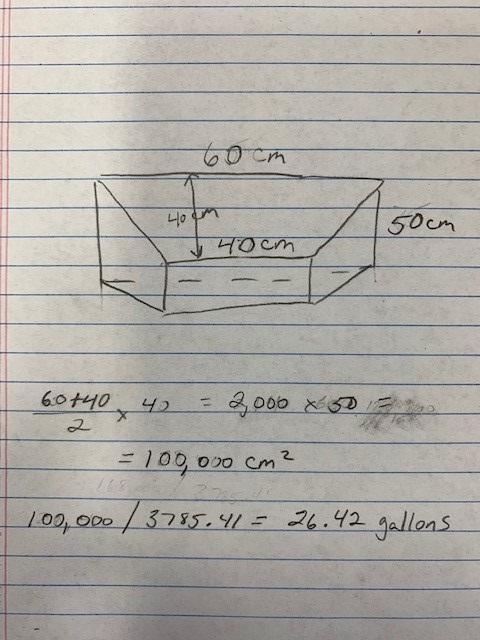 60 cm
40 cm
50 cm
40 cm
60+40/2 × 40 = 2,000 × 50 =
= 100,000 cm²
100,000 / 3785.41 = 26.42 gallons